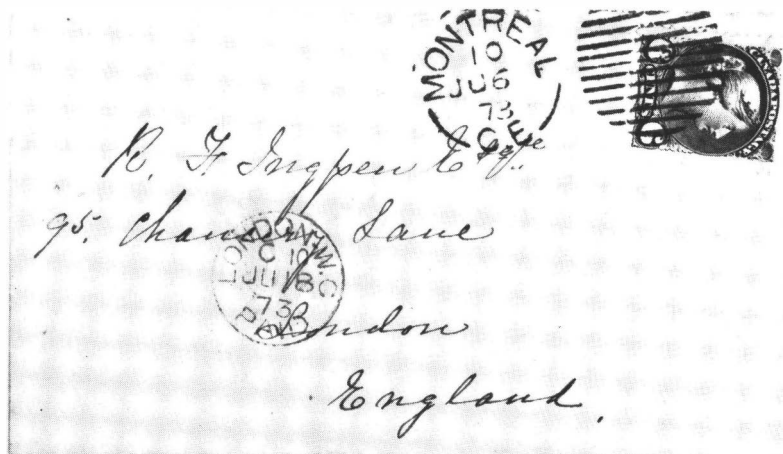 MONTREAL
10
JU 6
73
C.E.
6 CENTS 6
R. F. Ingpen Esqre
95. Chancery Lane
London
England.
LONDON W.C
C 10
JU 18
73
PAID